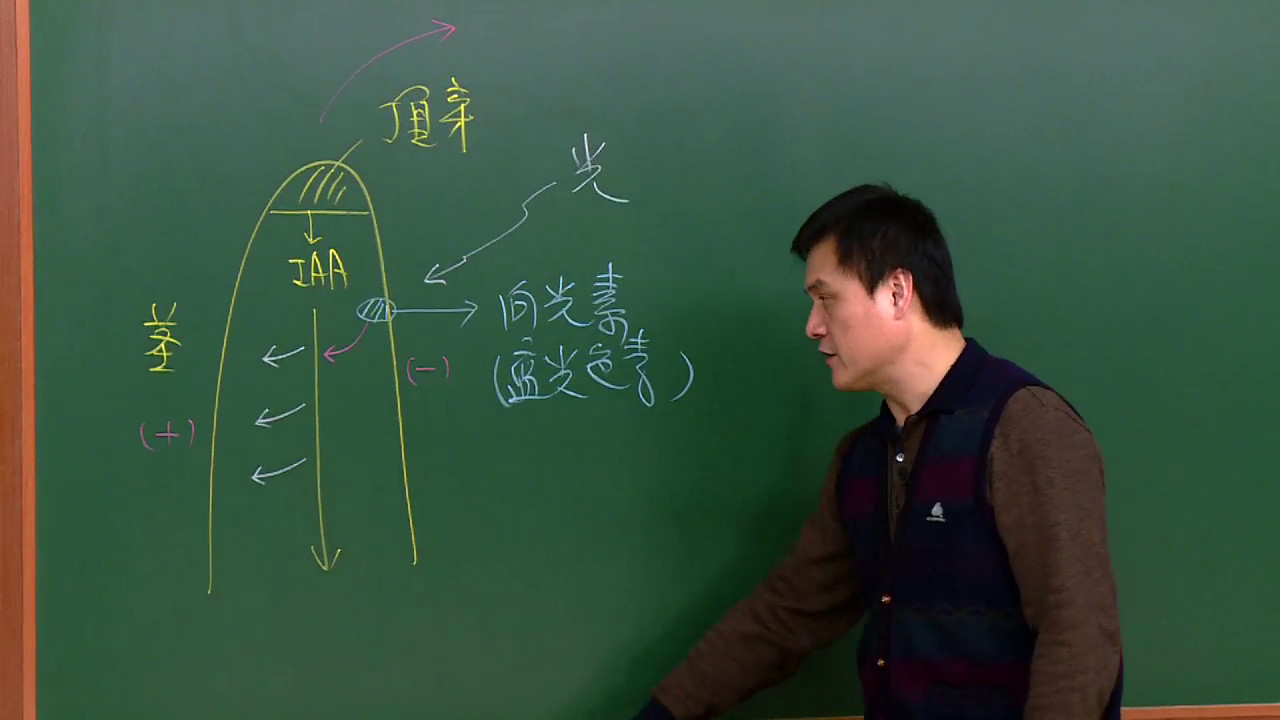 顶芽
光
IAA
向光素
(蓝光色素)
茎
(-)
(+)